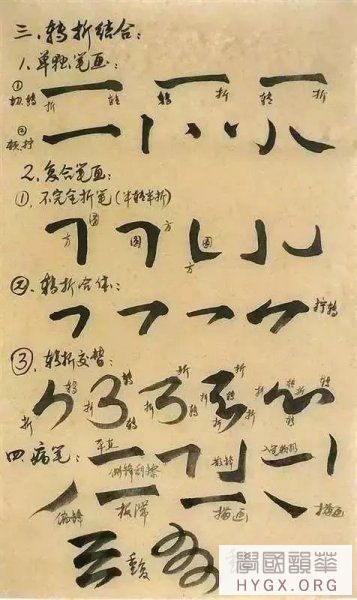 三、转折结合：
1.单独笔画：
① 切、转 折 转 转 折 转 折
② 顿、拧
2.复合笔画：
①、不完全折笔（半转半折）
方 圆 圆 方 圆 方
②、转折合体：
拧转
③、转折交替：
折 转 折 转 折 转 折
四、病笔：
平直 侧锋刮擦 散锋
偏锋 板滞 描画 描画
重复
學國韻華
HYGX.ORG